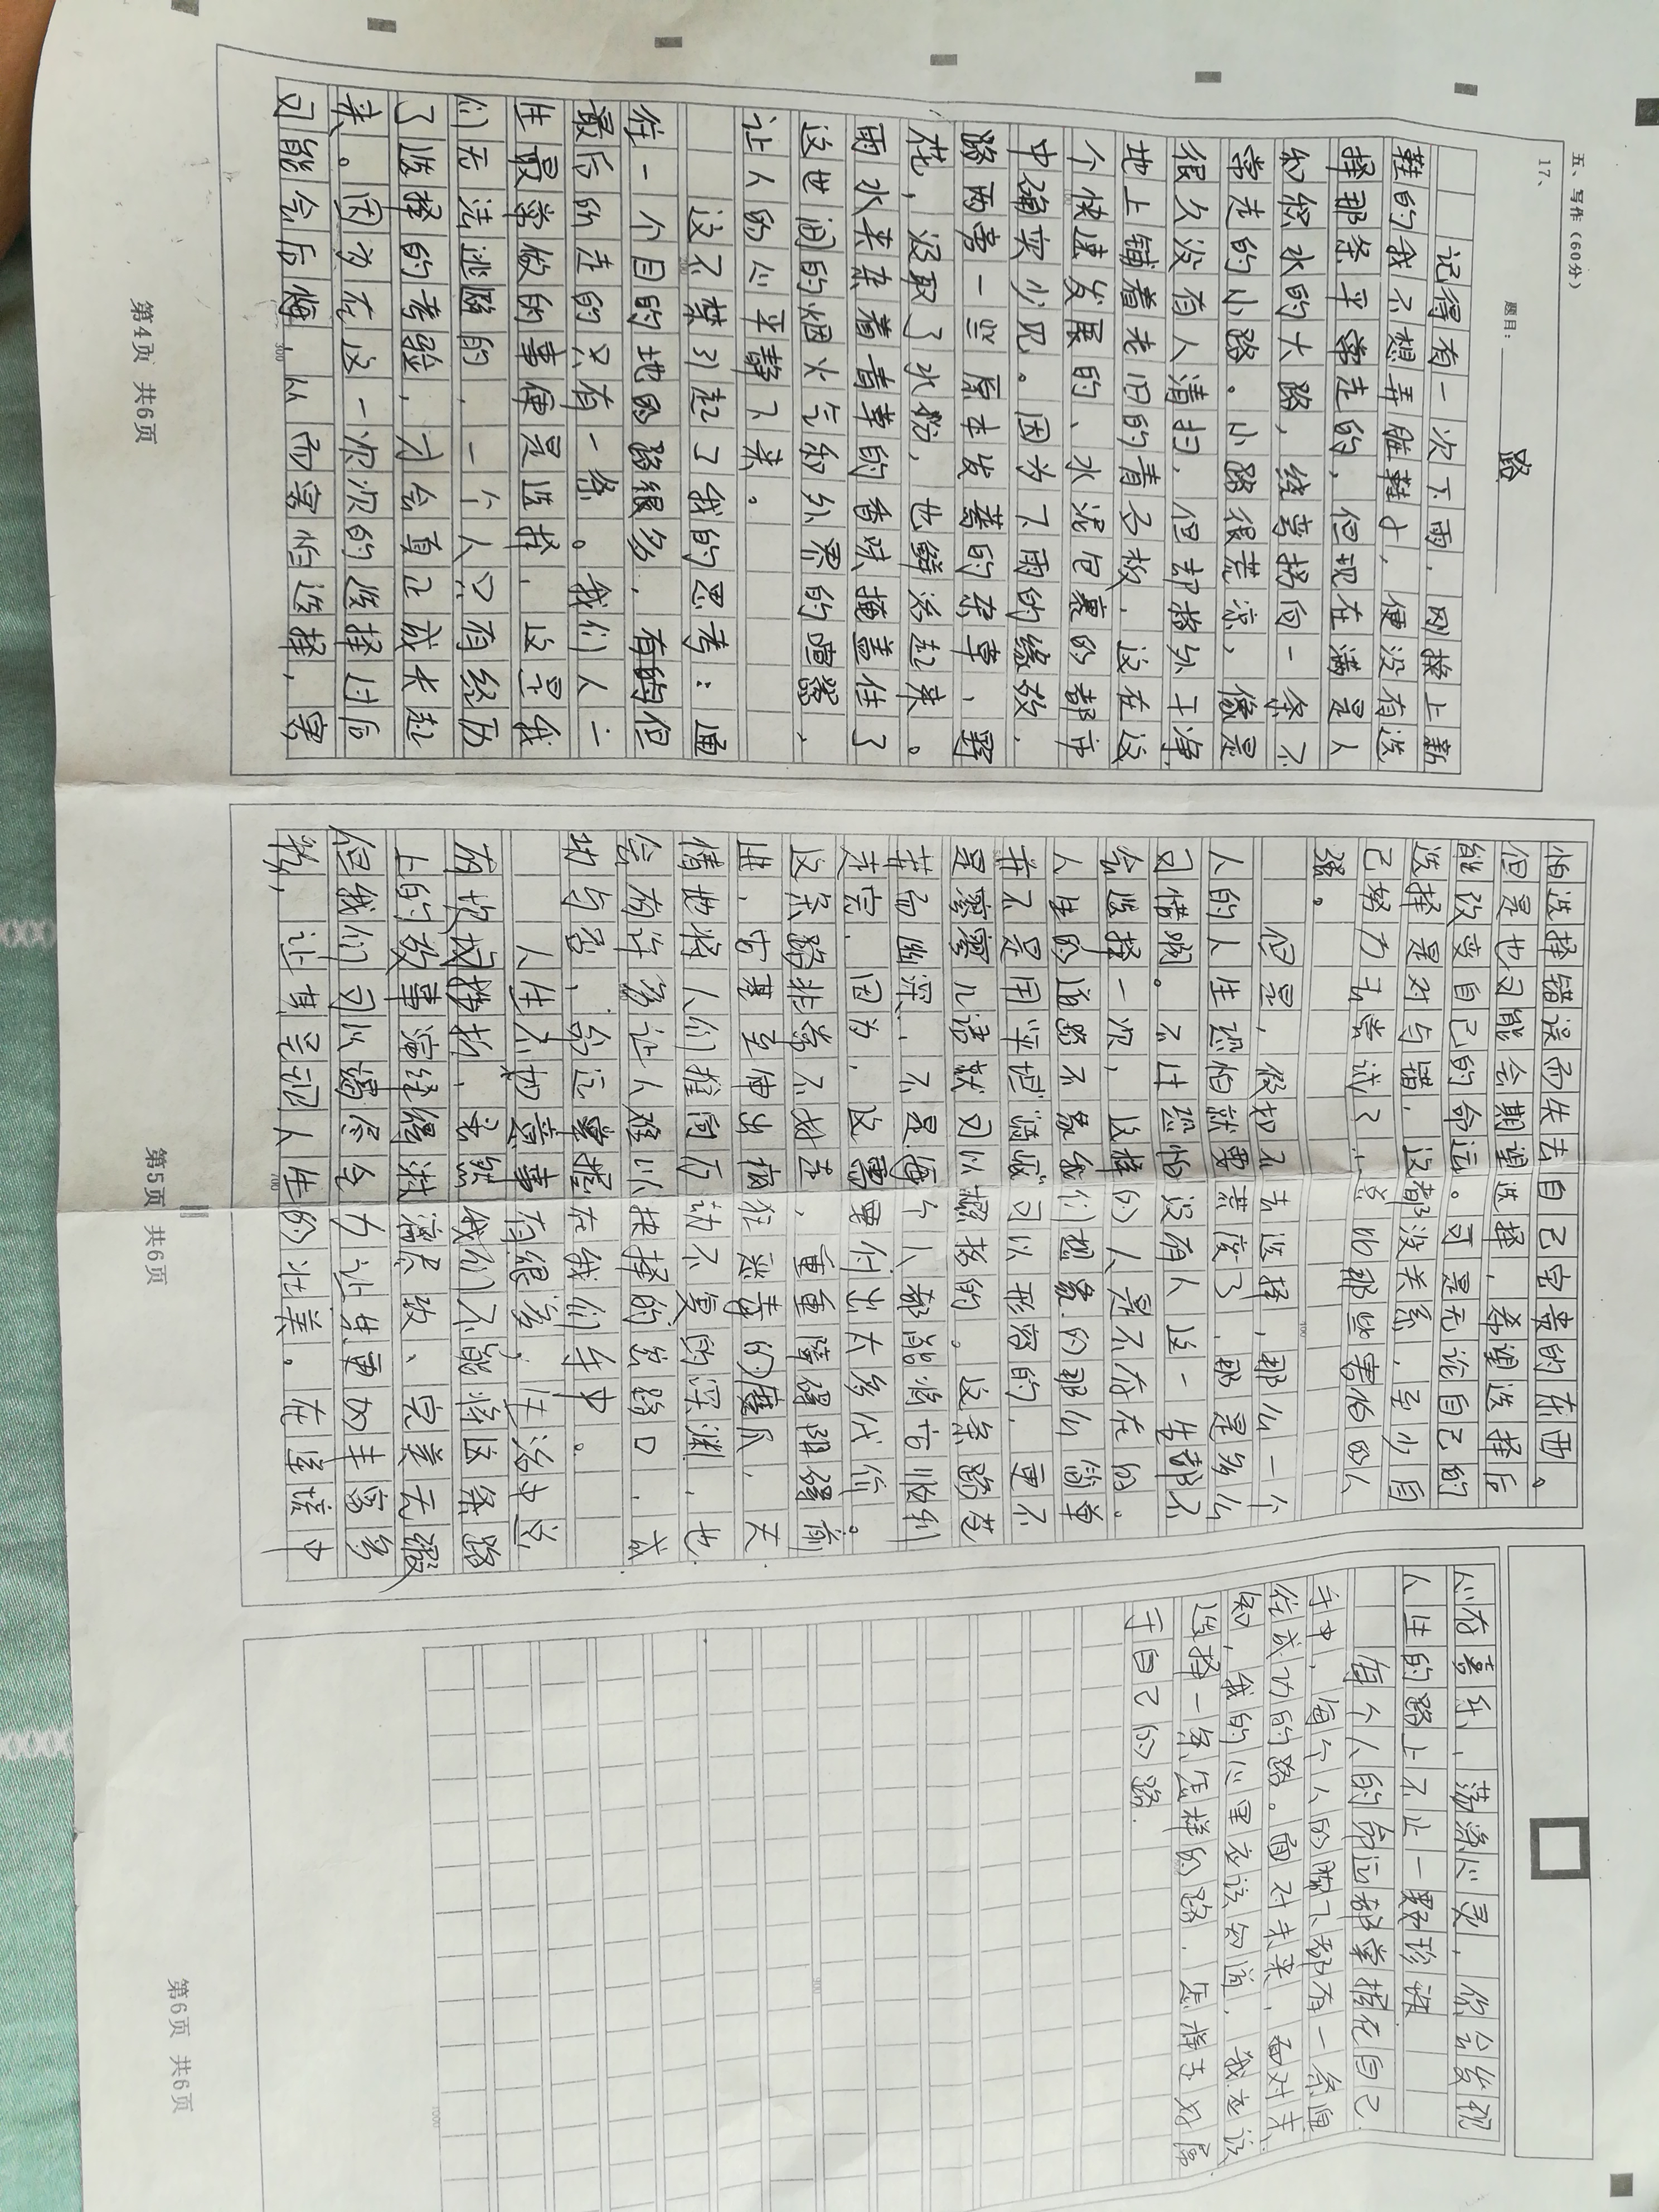 五、写作(60分)
17、
题目：路
记得有一次下雨，刚换上新
鞋的我不想弄脏鞋子，便没有选
择那条平常走的，但现在满是人
和途水的大路，绕弯拐向一条不
常走的小路。小路很荒凉，像是
很久没有人清扫，但却格外干净
地上铺着老旧的青石板，这在这
个快速发展的、水泥包裹的都市
中确实少见。因为下雨的缘故，
路两旁一些原本发蔫的杂草、野
花，汲取了水粉，也鲜活起来。
雨水夹杂着青草的香味掩盖住了
这世间的烟火气和外界的喧嚣，
让人的心平静下来。
这不禁引起了我的思考：通
往一个目的地的路很多，有的但
最后的走的只有一条。我们人一
生最常做的事便是选择，这是我
们无法逃避的，一个人只有经历
了选择的考验，才会真正成长起
来。因为在这一次次的选择过后
可能会后悔，从而害怕选择，害
300
第4页 共6页
怕选择错误而失去自己宝贵的东西。
但是也可能会期望选择，希望选择后
能改变自己的命运。可是无论自己的
选择是对与错，这都没关系，至少自
己努力去尝试了……总比那些害怕的人
强。
但是，假如不去选择，那么一个
人的人生恐怕就要荒废了，那是多么
可惜啊。不过恐怕没有人这一生都不
会选择一次，这样的人是不存在的。
人生的道路不象我们想象的那么简单
并不是用平坦能可以形容的，更不
是寥寥几语就可以概括的。这条路苍
茫而幽深，不是每个人都能将它顺利
走完，因为，这需要付出太多代价。
这条路非常不好走，重重障碍阻碍前
进，它甚至伸出疯狂邪毒的魔爪，无
情地将人们推向万劫不复的深渊，也
会有许多让人难以抉择的岔路口，成
功与否，命运掌握在我们手中。
人生不如意事有很多，生活中总
有坎坷挫折，虽然我们不能将这条路
上的故事演经得波澜民致、完美无瑕
但我们可以竭尽全力让其更加丰富多
彩，让其呈现人生的壮美。在坚持中
700
第5页 共6页
心存喜乐，荡涤心灵，你会发现
人生的路上不止一颗珍珠
每个人的命运都掌握在自己
手中，每个人的脚下都有一条通
往成功的路。面对未来，面对未
知，我的心里应该知道，我应该
选择一条怎样的路，怎样去走属
于自己的路.
900
1000
第6页 共6页